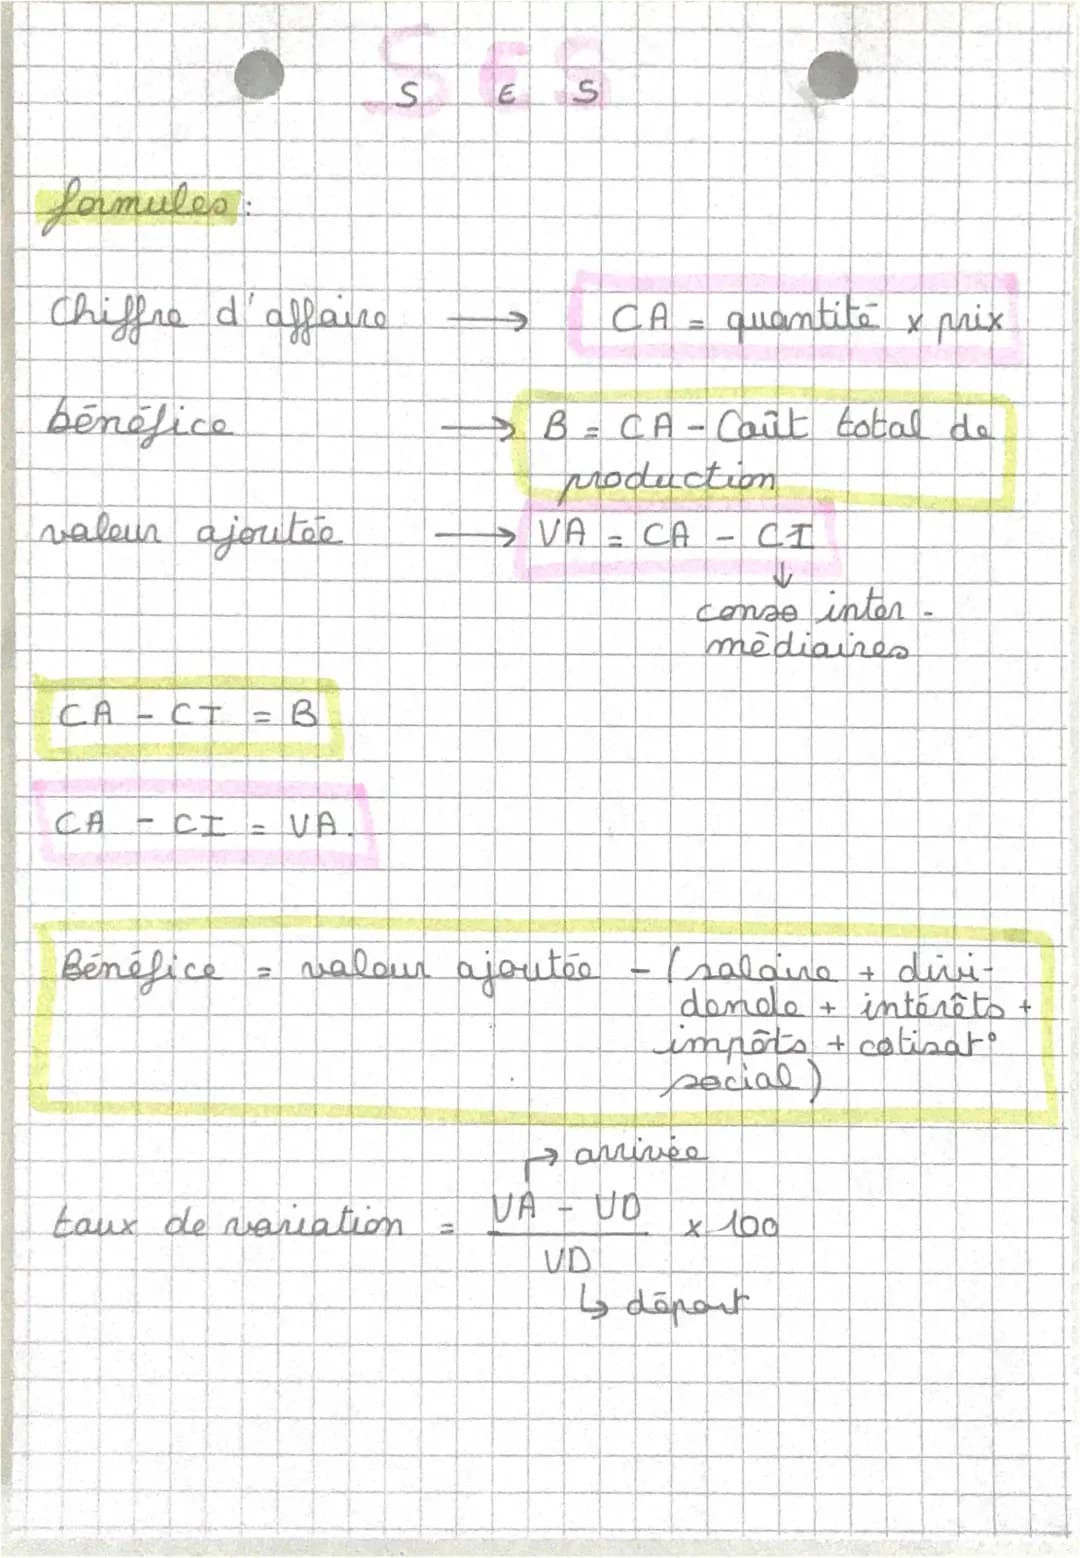 SES
S E S
formules:
Chiffre d'affaire → CA = quantité x prix
bénéfice → B = CA - Coût total de
production
valeur ajoutée → VA = CA - CI
↓
conso inter-
médiaires
CA - CT = B
CA - CI = VA.
Bénéfice = valeur ajoutée - (salaire + divi-
dende + intérêts +
impôts + cotisat°
social)
↱ arrivée
taux de variation = VA - VD x 100
VD
↳ départ